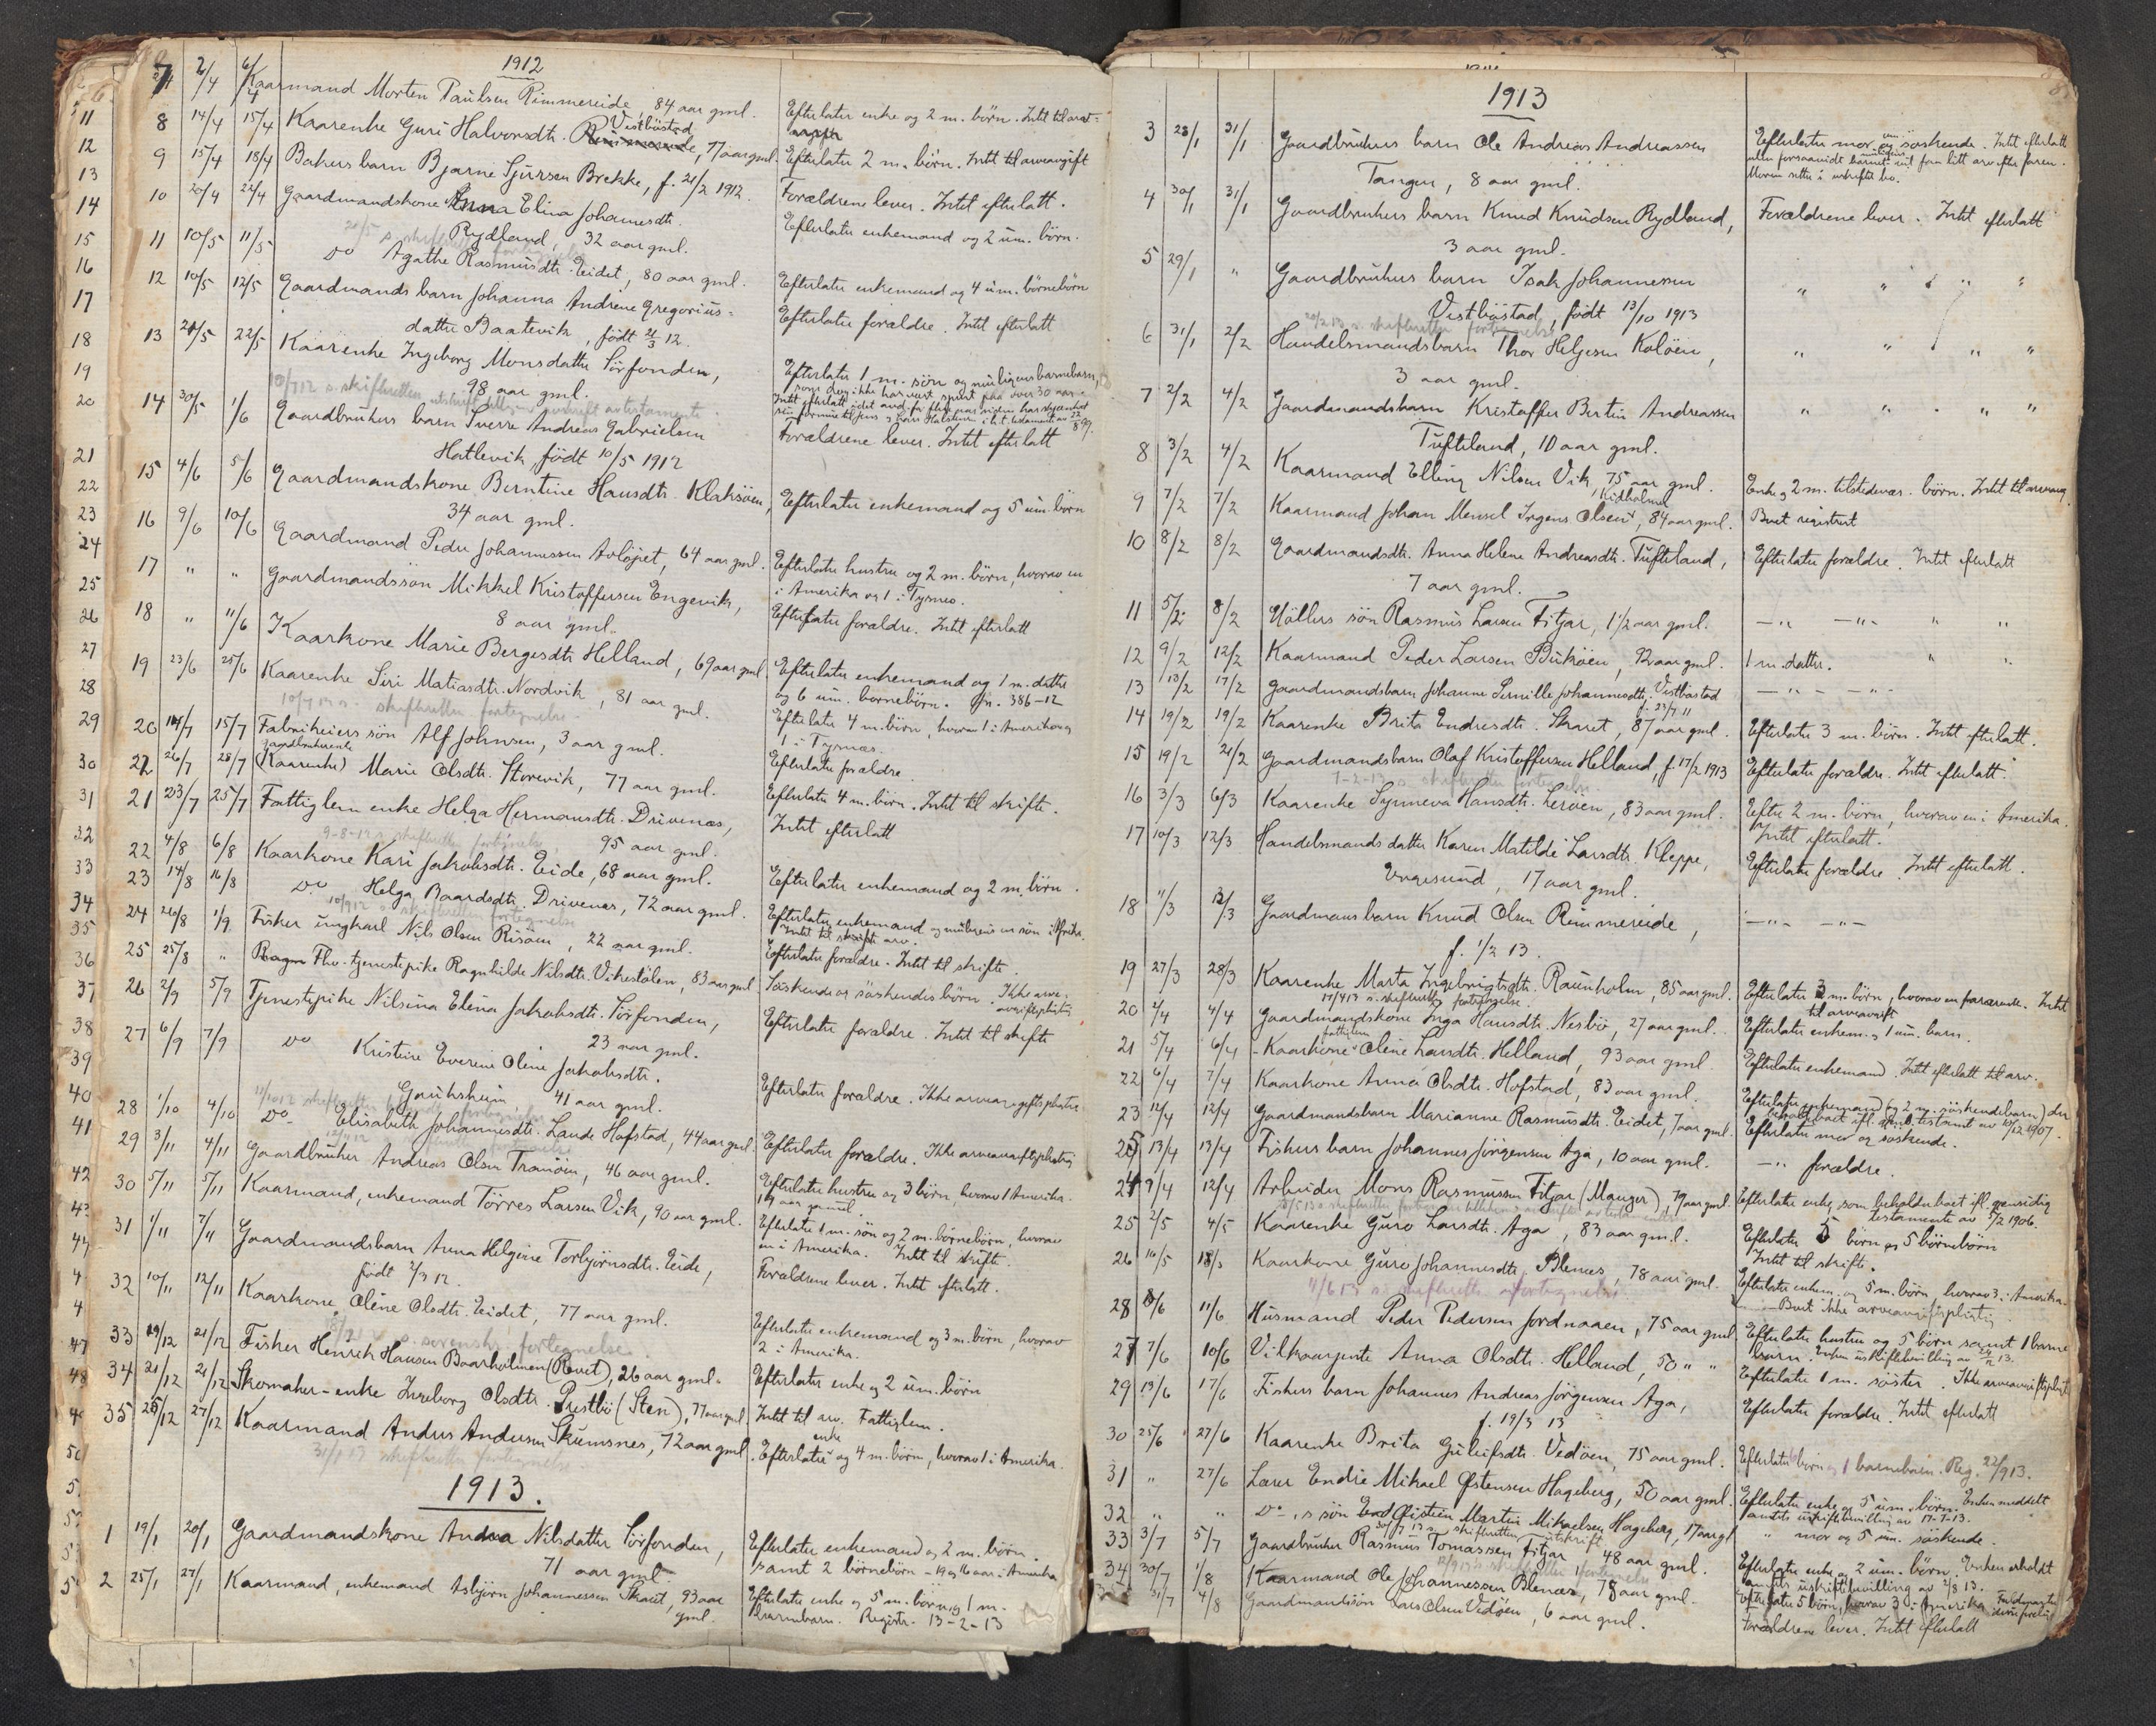 1912
7 2/4 6/4 Kaarmand Morten Paulsen Rimmereide, 84 aar gml. Efterlater enke og 2 m. börn. Intet til
8 14/4 15/4 Kaarenke Guri Halvorsdtr. Vestböstad, 77 aar gml. Efterlater 2 m. börn. Intet til arveavgift
9 15/4 18/4 Bakers barn Bjarne Sjursen Brekke, f. 21/2 1912. Forældrene lever. Intet efterlatt.
10 20/4 22/4 Gaardmandskone Anna Elina Johannesdt. Efterlater enkemand og 2 um. börn.
Rydland, 32 aar gml.
11 10/5 11/5 Do Agathe Rasmusdtr. Eidet, 80 aar gml. Efterlater enkemand og 4 um. börnebörn
12 10/5 12/5 Gaardmands barn Johanna Andrene Gregorius= Efterlater forældre. Intet efterlatt
datter Baatevik, født 21/3 12.
13 21/5 22/5 Kaarenke Ingeborg Monsdatter Sörfonden, Efterlater 1 m. sön og muligens barnebarn,
98 aar gml. som dog ikke har vært spurt paa over 30 aar.
14 30/5 1/6 Gaardbrukers barn Sverre Andreas Gabrielsen Forældrene lever. Intet efterlatt
Hatlevik, født 10/5 1912
15 4/6 5/6 Gaardmandskone Berntine Hansdtr. Klaksöen, Efterlater enkemand og 5 um. börn
34 aar gml.
16 9/6 10/6 Gaardmand Peder Johannessen Avlöpet, 64 aar gml. Efterlater hustru og 2 m. börn, hvorav en
i Amerika og 1 i Tysnes.
17 " " Gaardmandssön Mikkel Kristoffersen Engevik, Efterlater forældre. Intet efterlatt
8 aar gml.
18 " 11/6 Kaarkone Marie Bergesdtr Helland, 69 aar gml. Efterlater enkemand og 1 m. datter
og 6 um. börnebörn. Jn. 386-12
19 23/6 25/6 Kaarenke Siri Matiasdtr. Nordvik, 81 aar gml. Efterlater 4 m. börn, hvorav 1 i Amerika og
1 i Tysnæs.
20 14/7 15/7 Fabrikeiers sön Alf Johnsen, 3 aar gml. Efterlater forældre.
22 26/7 28/7 (Kaarenke) Marie Olsdtr. Storevik, 77 aar gml. Efterlater 4 m. börn. Intet til skifte.
21 23/7 25/7 Fattiglem enke Helga Hermansdtr. Drivenæs, Intet efterlatt
95 aar gml.
22 4/8 6/8 Kaarkone Kari Jakobsdtr. Eide, 68 aar gml. Efterlater enkemand og 2 m. börn.
23 14/8 16/8 Do Helga Baardsdtr. Drivenes, 72 aar gml. Efterlater enkemand og muligens en sön i Afrika.
24 26/8 1/9 Fisker ungkarl Nils Olsen Risöen, 22 aar gml. Efterlater forældre. Intet til skifte.
25 25/8 " Fhv. tjenestepike Ragnhilde Nilsdtr. Vikestölen, 83 aar gml. Söskende og söskendes börn. Ikke arve-
avgiftspliktig
26 2/9 5/9 Tjenestepike Nilsina Elina Jakobsdtr. Sörfonden, Efterlater forældre. Intet til skifte
23 aar gml.
27 6/9 7/9 Do Kristine Everine Oline Jakobsdtr. Efterlater forældre. Ikke arveavgiftspliktig
Gauksheim 41 aar gml.
28 1/10 4/10 Do Elisabeth Johannesdtr. Lande Hofstad, 44 aar gml. Efterlater forældre. Ikke arveavgiftspliktig
29 3/11 4/11 Gaardbruker Andreas Olsen Tranöen, 46 aar gml. Efterlater hustru og 3 börn, hvorav 1 Amerika.
30 5/11 5/11 Kaarmand, enkemand Törres Larsen Vik, 90 aar gml. Efterlater 1 m. sön og 2 m. börnebörn, hvorav
en i Amerika. Intet til skifte.
31 1/11 7/11 Gaardmandsbarn Anna Helgine Torbjörnsdtr. Eide, Forældrene lever. Intet efterlatt.
født 2/3 12.
32 10/11 12/11 Kaarkone Oline Olsdtr. Eidet, 77 aar gml. Efterlater enkemand og 3 m. börn, hvorav
2 i Amerika.
33 19/12 21/12 Fisker Henrik Hansen Baarholmen (Rovet), 26 aar gml. Efterlater enke og 2 um. börn
34 21/12 21/12 Skomaker-enke Ingeborg Olsdtr. Prestbö (Sten), 77 aar gml. Intet til arv. Fattiglem.
35 25/12 27/12 Kaarmand Anders Andersen Skumsnes, 72 aar gml. Efterlater enke og 4 m. börn, hvorav 1 i Amerika.
31/1 13 skifteretten fortegnelse
1913.
1 19/1 20/1 Gaardmandskone Andrea Nilsdatter Sörfonden, Efterlater enkemand og 2 m. börn.
71 aar gml samt 2 börnebörn - 19 og 16 aar i Amerika
2 25/1 27/1 Kaarmand, enkemand Asbjörn Johannessen Skaret, 93 aar gml. Efterlater enke og 5 m. börn og 1 m.
barnebarn. Registr. 13-2-13
1913
3 28/1 31/1 Gaardbrukers barn Ole Andreas Andreassen Efterlater mor og um. söskende. Intet efterlatt
Tangen, 8 aar gml. Moren sitter i uskiftet bo.
4 30/1 31/1 Gaardbrukers barn Knud Knudsen Rydland, Forældrene lever. Intet efterlatt
3 aar gml.
5 29/1 " Gaardbrukers barn Isak Johannessen " " " "
Vestböstad, født 13/10 1913
6 31/1 2/2 Handelsmandsbarn Thor Helgesen Kolöen, " " " "
3 aar gml.
7 2/2 4/2 Gaardmandsbarn Kristoffer Bertin Andreassen " " " "
Tufteland, 10 aar gml.
8 3/2 4/2 Kaarmand Elling Nilsen Vik, 75 aar gml. Enke og 2 m. tilstedevær. börn. Intet til arveavg.
9 7/2 7/2 Kaarmand Johan Mensel Irgens Olsen, Kidholmen, 84 aar gml. Boet registrert
10 8/2 8/2 Gaardmandsdtr. Anna Helene Andreasdtr. Tufteland, Efterlater forældre. Intet efterlatt
7 aar gml.
11 5/2 8/2 Möllers sön Rasmus Larsen Fitjar, 1 1/2 aar gml. -"- -"- " "
12 9/2 12/2 Kaarmand Peder Larsen Buköen, 92 aar gml. 1 m. datter. " "
13 13/2 17/2 Gaardmandsbarn Johanne Pernille Johannesdtr. Vestböstad -"- -"-
f. 23/7 11
14 19/2 19/2 Kaarenke Brita Endresdtr. Skaret, 87 aar gml. Efterlater 3 m. börn. Intet efterlatt.
15 19/2 21/2 Gaardmandsbarn Olaf Kristoffersen Helland, f. 17/2 1913 Efterlater forældre. Intet efterlatt.
16 3/3 6/3 Kaarenke Synneva Hansdtr. Leröen, 83 aar gml. Efter 2 m. börn, hvorav en i Amerika.
Intet efterlatt.
17 10/3 12/3 Handelsmands datter Karen Matilde Larsdtr. Kleppe, Efterlater forældre. Intet efterlatt.
Engesund, 17 aar gml.
18 11/3 12/3 Gaardmans barn Knud Olsen Rimmereide, -"- -"-
f. 1/2 13.
19 27/3 28/3 Kaarenke Marta Ingebrigtsdtr. Raunholm, 85 aar gml. Efterlater 3 m. börn, hvorav en fararende. Intet
til arveavgift
20 2/4 4/4 Gaardmandskone Inga Hansdtr. Nesbö, 27 aar gml. Efterlater enkem. og 1 um. barn.
21 5/4 6/4 Kaarkone Oline Larsdtr. Helland, 93 aar gml Efterlater enkemand. Intet efterlatt til arv.
22 6/4 7/4 Kaarkone Anna Olsdtr. Hofstad, 83 aar gml. Efterlater enkemand (og 2 m. söskendebarn) der
23 12/4 12/4 Gaardmandsbarn Marianne Rasmusdtr. Eidet, 7 aar gml. Efterlater mor og söskende.
25 13/4 13/4 Fiskers barn Johannes Jörgensen Aga, 10 aar gml. -"- forældre.
24 9/4 12/4 Arbeider Mons Rasmussen Fitjar (Mauger), 79 aar gml. Efterlater enke som beholder boet ifl. gjensidig
testamente av 5/2 1906.
25 2/5 4/5 Kaarenke Guro Larsdtr. Aga, 83 aar gml. Efterlater 5 börn og 5 börnebörn
Intet til skifte.
26 16/5 18/5 Kaarkone Guro Johannesdtr. Blenes, 78 aar gml. Efterlater enkem. og 5 m. börn, hvorav 3 i Amerika.
Boet ikke arveavgiftspliktig
28 8/6 11/6 Husmand Peder Pedersen Jordnaaen, 75 aar gml Efterlater hustru og 5 börn samt 1 barne
barn.
27 7/6 10/6 Vilkaarjente Anna Olsdtr. Helland, 50 " " Efterlater 1 m. söster. Ikke arveavgiftspligt
29 13/6 17/6 Fiskers barn Johannes Andreas Jörgensen Aga, Efterlater forældre. Intet efterlatt
f. 19/3 13
30 25/6 27/6 Kaarenke Brita Guleifsdtr. Vedöen, 75 aar gml. Efterlater börn og 1 barnebarn. Reg. 22/9 13.
31 " 27/6 Lærer Endre Mikael Østensen Hageberg, 50 aar gml. Efterlater enke og 5 um. börn. Enken meddelt
amtets uskiftebevilling av 17-7-13.
32 " " Do., s sön Øistein Martin Mikaelsen Hageberg, 17 aar gl " mor og 5 um. söskende.
33 3/7 5/7 Gaardbruker Rasmus Tomassen Fitjar, 48 aar gml. Efterlater enke og 2 um. börn. Enken erholdt
amtets uskiftebevilling av 2/8 13.
34 30/7 1/8 Kaarmand Ole Johannessen Blenes, 78 aar gml. Efterlater 5 börn, hvorav 3 i Amerika
31/7 4/8 Gaardmandssön Lars Olsen Vedöen, 6 aar gml. Forældrene lever. Intet efterlatt